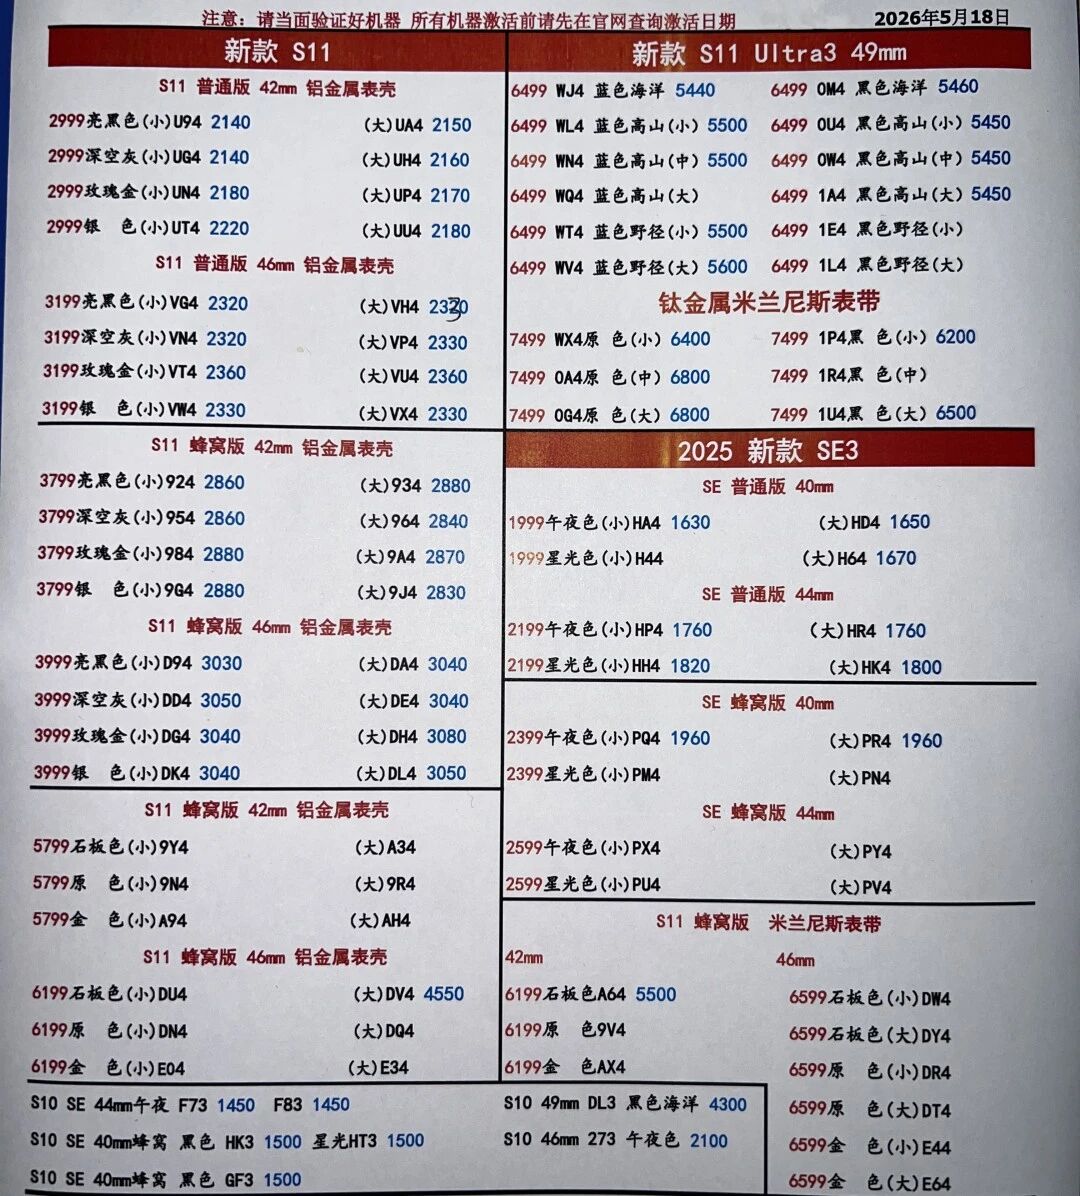 注意：请当面验证好机器 所有机器激活前请先在官网查询激活日期
2026年5月18日
新款 S11
S11 普通版 42mm 铝金属表壳
2999亮黑色(小)U94 2140 (大)UA4 2150
2999深空灰(小)UG4 2140 (大)UH4 2160
2999玫瑰金(小)UN4 2180 (大)UP4 2170
2999银 色(小)UT4 2220 (大)UU4 2180
S11 普通版 46mm 铝金属表壳
3199亮黑色(小)VG4 2320 (大)VH4 2320
3
3199深空灰(小)VN4 2320 (大)VP4 2330
3199玫瑰金(小)VT4 2360 (大)VU4 2360
3199银 色(小)VW4 2330 (大)VX4 2330
S11 蜂窝版 42mm 铝金属表壳
3799亮黑色(小)924 2860 (大)934 2880
3799深空灰(小)954 2860 (大)964 2840
3799玫瑰金(小)984 2880 (大)9A4 2870
3799银 色(小)9G4 2880 (大)9J4 2830
S11 蜂窝版 46mm 铝金属表壳
3999亮黑色(小)D94 3030 (大)DA4 3040
3999深空灰(小)DD4 3050 (大)DE4 3040
3999玫瑰金(小)DG4 3040 (大)DH4 3080
3999银 色(小)DK4 3040 (大)DL4 3050
S11 蜂窝版 42mm 铝金属表壳
5799石板色(小)9Y4 (大)A34
5799原 色(小)9N4 (大)9R4
5799金 色(小)A94 (大)AH4
S11 蜂窝版 46mm 铝金属表壳
6199石板色(小)DU4 (大)DV4 4550
6199原 色(小)DN4 (大)DQ4
6199金 色(小)E04 (大)E34
新款 S11 Ultra3 49mm
6499 WJ4 蓝色海洋 5440 6499 0M4 黑色海洋 5460
6499 WL4 蓝色高山(小) 5500 6499 0U4 黑色高山(小) 5450
6499 WN4 蓝色高山(中) 5500 6499 0W4 黑色高山(中) 5450
6499 WQ4 蓝色高山(大) 6499 1A4 黑色高山(大) 5450
6499 WT4 蓝色野径(小) 5500 6499 1E4 黑色野径(小)
6499 WV4 蓝色野径(大) 5600 6499 1L4 黑色野径(大)
钛金属米兰尼斯表带
7499 WX4原 色(小) 6400 7499 1P4黑 色(小) 6200
7499 0A4原 色(中) 6800 7499 1R4黑 色(中)
7499 0G4原 色(大) 6800 7499 1U4黑 色(大) 6500
2025 新款 SE3
SE 普通版 40mm
1999午夜色(小)HA4 1630 (大)HD4 1650
1999星光色(小)H44 (大)H64 1670
SE 普通版 44mm
2199午夜色(小)HP4 1760 (大)HR4 1760
2199星光色(小)HH4 1820 (大)HK4 1800
SE 蜂窝版 40mm
2399午夜色(小)PQ4 1960 (大)PR4 1960
2399星光色(小)PM4 (大)PN4
SE 蜂窝版 44mm
2599午夜色(小)PX4 (大)PY4
2599星光色(小)PU4 (大)PV4
S11 蜂窝版 米兰尼斯表带
42mm
6199石板色A64 5500
6199原 色9V4
6199金 色AX4
46mm
6599石板色(小)DW4
6599石板色(大)DY4
6599原 色(小)DR4
6599原 色(大)DT4
6599金 色(小)E44
6599金 色(大)E64
S10 SE 44mm午夜 F73 1450 F83 1450
S10 SE 40mm蜂窝 黑色 HK3 1500 星光HT3 1500
S10 SE 40mm蜂窝 黑色 GF3 1500
S10 49mm DL3 黑色海洋 4300
S10 46mm 273 午夜色 2100